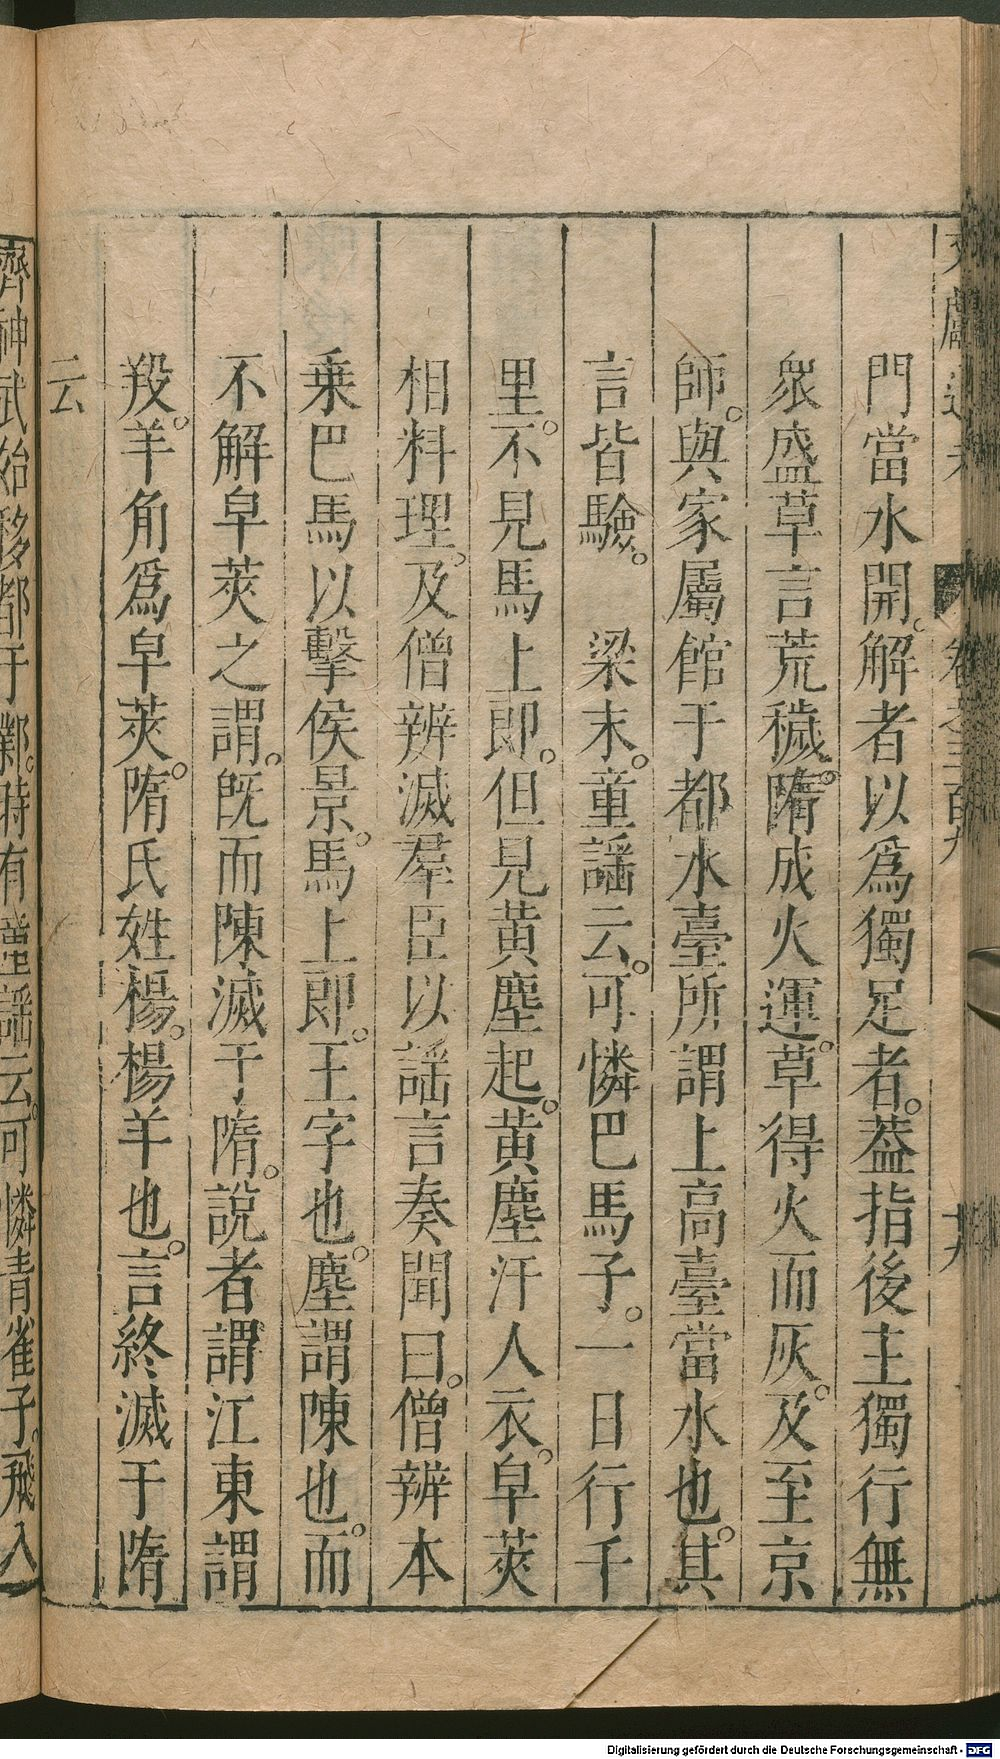 文獻通考 卷之三百九 十六
門當水開。解者以爲獨足者。葢指後主獨行無
衆盛草言荒穢。隋成火運。草得火而灰。及至京
師。與家屬館于都水臺所謂上高臺當水也。其
言皆驗。 梁末。童謡云。可憐巴馬子。一日行千
里。不見馬上郎。但見黃塵起。黃塵汗人衣。皁莢
相料理。及僧辨滅羣臣以謡言奏聞曰。僧辨本
乗巴馬以擊侯景。馬上郎。王字也。塵謂陳也。而
不解皁莢之謂。旣而陳滅于隋。說者謂江東謂
羖。羊角爲皁莢。隋氏姓楊。楊羊也。言終滅于隋
云
齊神武始移都于鄴。時有童謡云。可憐青雀子。飛入
Digitalisierung gefördert durch die Deutsche Forschungsgemeinschaft - DFG